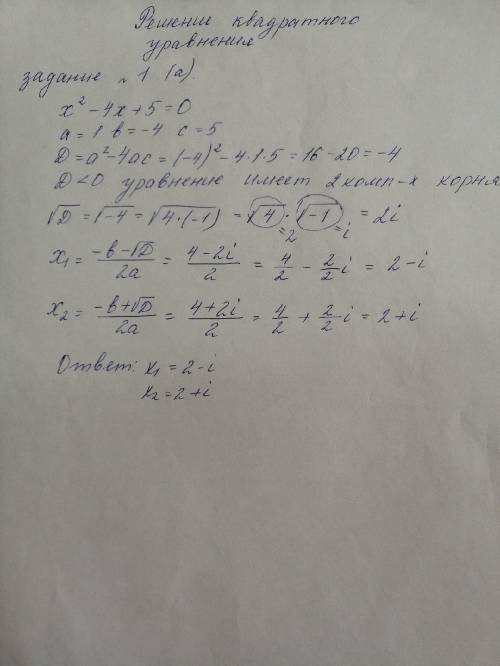 Решение квадратного
уравнения
задание №1 (а).
x² - 4x + 5 = 0
a = 1 b = -4 c = 5
D = a² - 4ac = (-4)² - 4·1·5 = 16 - 20 = -4
D < 0 уравнение имеет 2 комп-х корня
√D = √-4 = √4·(-1) = √4 · √-1 = 2i
=2 =i
x₁ = -b-√D/2a = 4-2i/2 = 4/2 - 2/2 i = 2 - i
x₂ = -b+√D/2a = 4+2i/2 = 4/2 + 2/2 i = 2 + i
Ответ: x₁ = 2-i
x₂ = 2+i